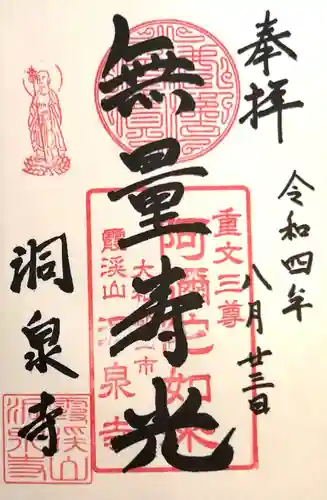 奉拝
令和四年
八月廿三日
無量寿光
重文三尊
阿彌陀如来
大和郡山市
靈溪山 洞泉寺
洞泉寺
靈溪山
洞泉寺